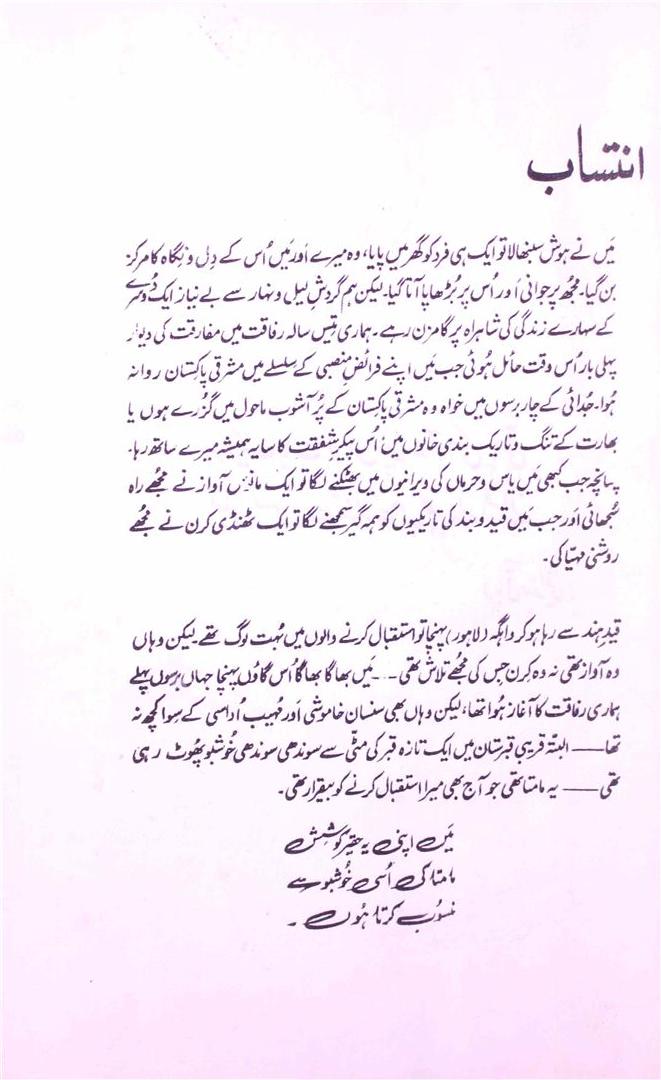 انتساب
مَیں نے ہوش سنبھالا تو ایک ہی فرد کو گھر میں پایا، وہ میرے اَور مَیں اُس کے دِل و نگاہ کا مرکز
بن گیا۔ مُجھ پر جوانی اَور اُس پر بُڑھاپا آتا گیا۔ لیکن ہم گردشِ لیل و نہار سے بے نیاز ایک دُوسرے
کے سہارے زندگی کی شاہراہ پر گامزن رہے۔ ہماری تیس سالہ رفاقت میں مفارقت کی دیوار
پہلی بار اُس وقت حائل ہُوئی جب مَیں اپنے فرائضِ منصبی کے سلسلے میں مشرقی پاکستان روانہ
ہُوا۔ جُدائی کے چار برسوں میں خواہ وہ مشرقی پاکستان کے پُر آشوب ماحول میں گزُرے ہوں یا
بھارت کے تنگ و تاریک بندی خانوں میں اُس پیکرِ شفقت کا سایہ ہمیشہ میرے ساتھ رہا۔
چنانچہ جب کبھی مَیں یاس و حرماں کی ویرانیوں میں بھٹکنے لگا تو ایک مانوس آواز نے مُجھے راہ
سُجھائی اَور جب مَیں قید و بند کی تاریکیوں کو ہمہ گیر سمجھنے لگا تو ایک ٹھنڈی کرن نے مُجھے
روشنی مہیّا کی۔
قیدِ ہند سے رہا ہو کر واہگہ (لاہور) پہنچا تو استقبال کرنے والوں میں بُہت لوگ تھے۔ لیکن وہاں
وہ آواز تھی نہ وہ کرن جس کی مُجھے تلاش تھی -۔- مَیں بھاگا بھاگا اُس گاؤں پہنچا جہاں برسوں پہلے
ہماری رفاقت کا آغاز ہُوا تھا، لیکن وہاں بھی سنسان خاموشی اَور مُہیب اُداسی کے سِوا کچھ نہ
تھا —— البتّہ قریبی قبرستان میں ایک تازہ قبر کی مٹّی سے سوندھی سوندھی خُوشبو پھُوٹ رہی
تھی —— یہ مامتا تھی جو آج بھی میرا استقبال کرنے کو بیقرار تھی۔
مَیں اپنی یہ حقیر کوشش
مامتا کی اُسی خُوشبو سے
منسوُب کرتا ہُوں ۔